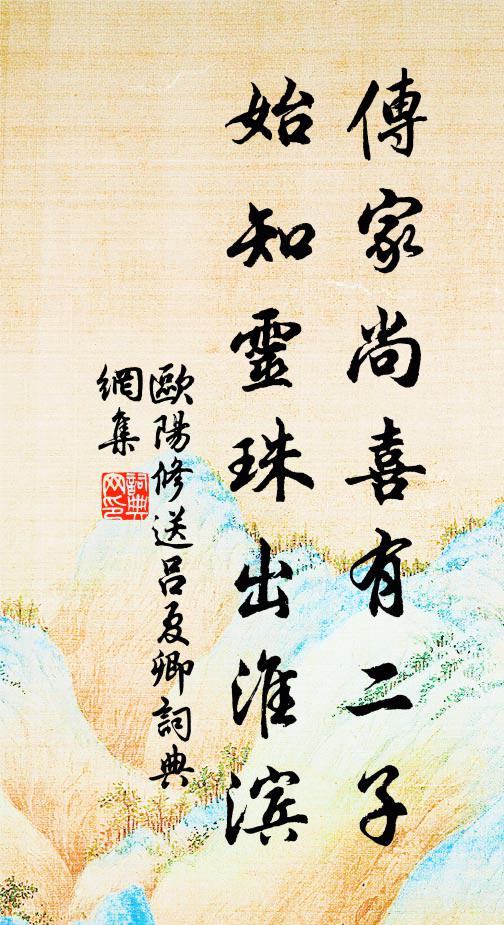 傳家尚喜有二子
始知靈珠出淮滨
歐陽修送呂夏卿詞典
網集
詞典
网印